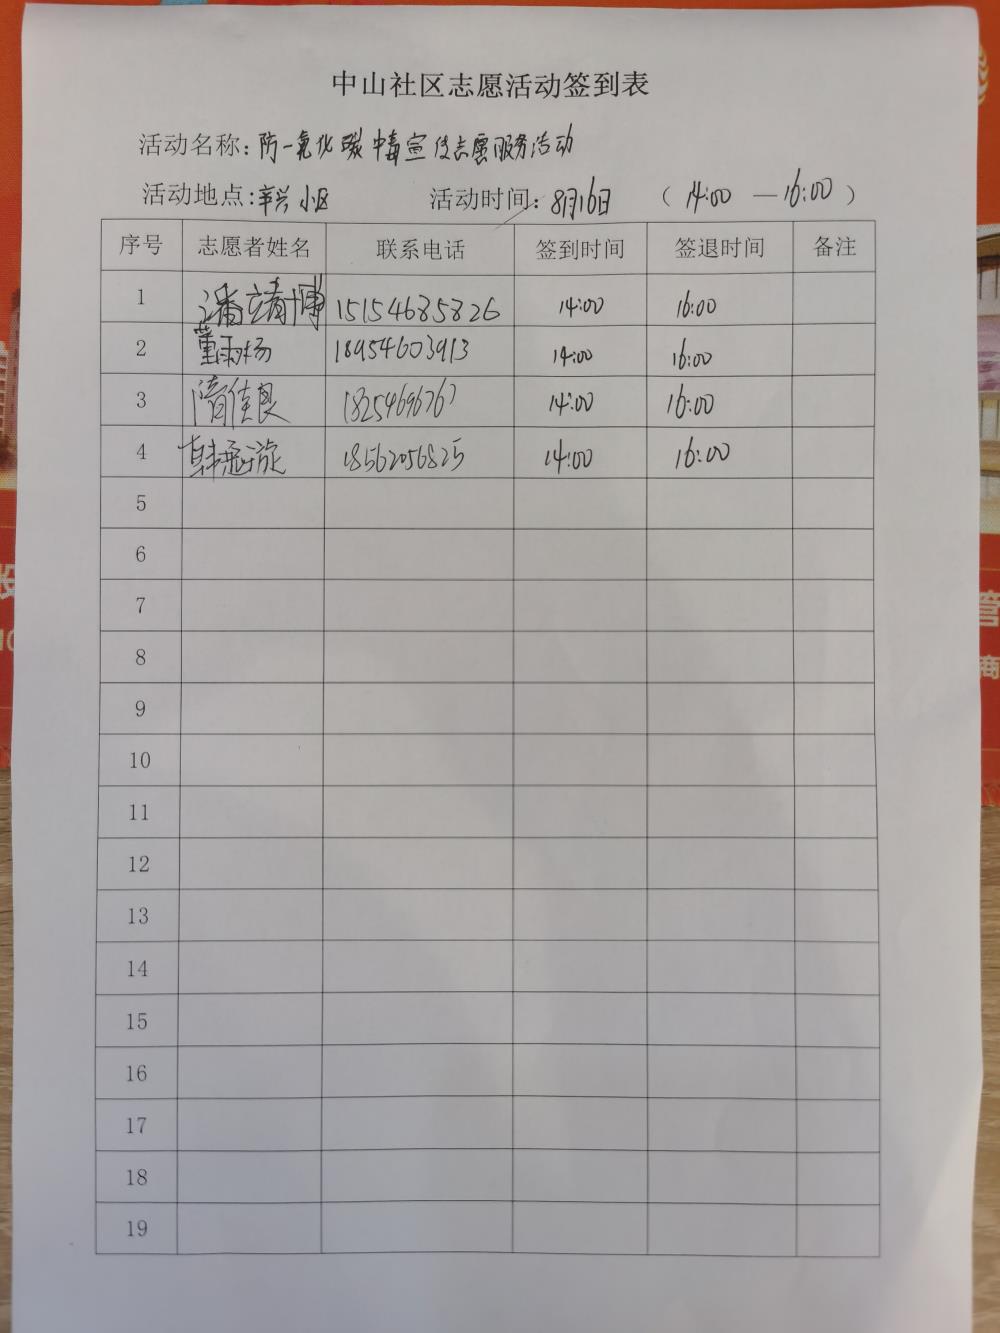 中山社区志愿活动签到表
活动名称:防一氧化碳中毒宣传志愿服务活动
活动地点:辛兴小区 活动时间:8月16日 (14:00 —16:00)
序号 志愿者姓名 联系电话 签到时间 签退时间 备注
1 潘靖博 15154685826 14:00 16:00
2 董雨杨 18954603913 14:00 16:00
3 隋佳良 18254696767 14:00 16:00
4 韩 18562056825 14:00 16:00
5
6
7
8
9
10
11
12
13
14
15
16
17
18
19
管
商